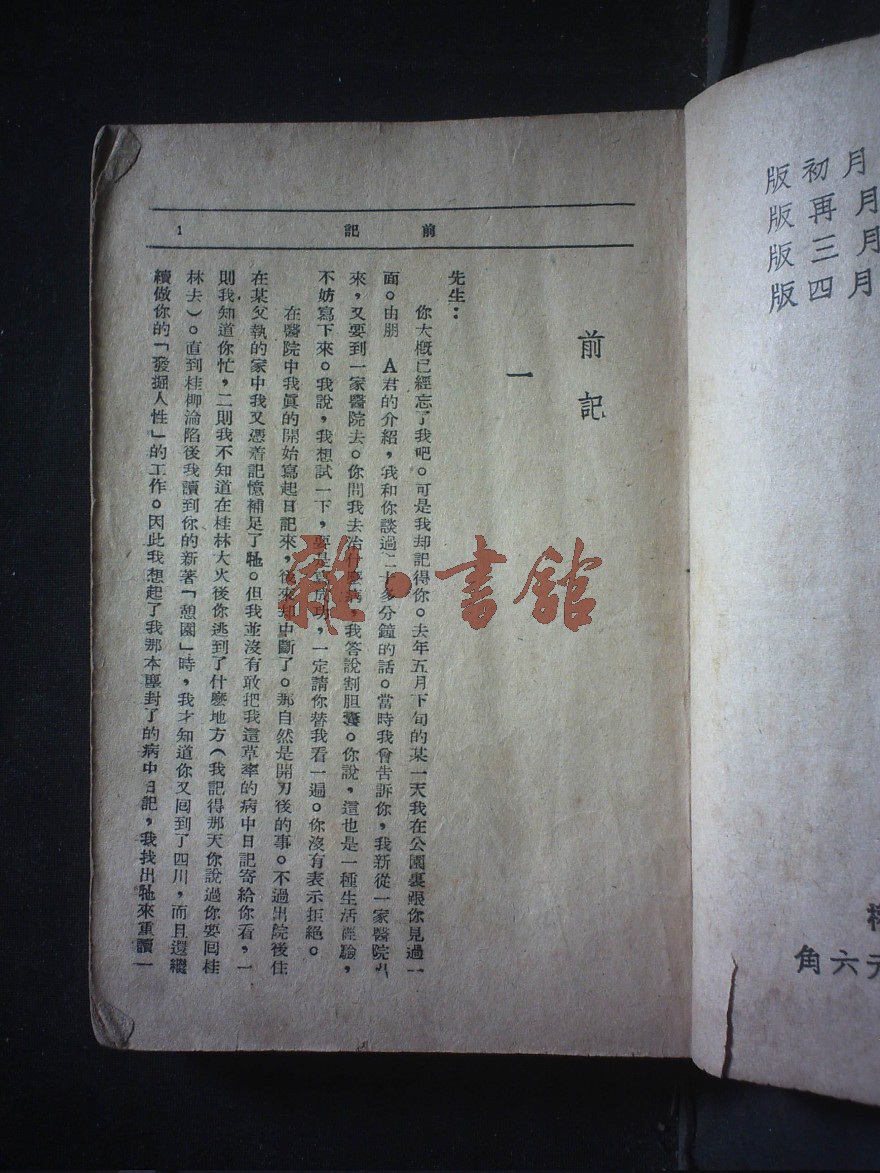 前記
1
前記
一
先生：
你大概已經忘了我吧。可是我却記得你。去年五月下旬的某一天我在公園裏跟你見過一
面。由朋 A君的介紹，我和你談過二十多分鐘的話。當時我曾告訴你，我新從一家醫院出
來，又要到一家醫院去。你問我去治什麼病，我答說割胆囊。你說，這也是一種生活經驗，
不妨寫下來。我說，我想試一下，要是寫成功，一定請你替我看一遍。你沒有表示拒絕。
在醫院中我眞的開始寫起日記來，後來却中斷了。那自然是開刀後的事。不過出院後住
在某父執的家中我又憑着記憶補足了牠。但我並沒有敢把我這草率的病中日記寄給你看，一
則我知道你忙，二則我不知道在桂林大火後你逃到了什麼地方（我記得那天你說過你要囘桂
林去）。直到桂柳淪陷後我讀到你的新著「憩園」時，我才知道你又囘到了四川，而且還繼
續做你的「發掘人性」的工作。因此我想起了我那本塵封了的病中日記，我找出牠來重讀一
月初版
月再版
月三版
月四版
元六角
雜·書館